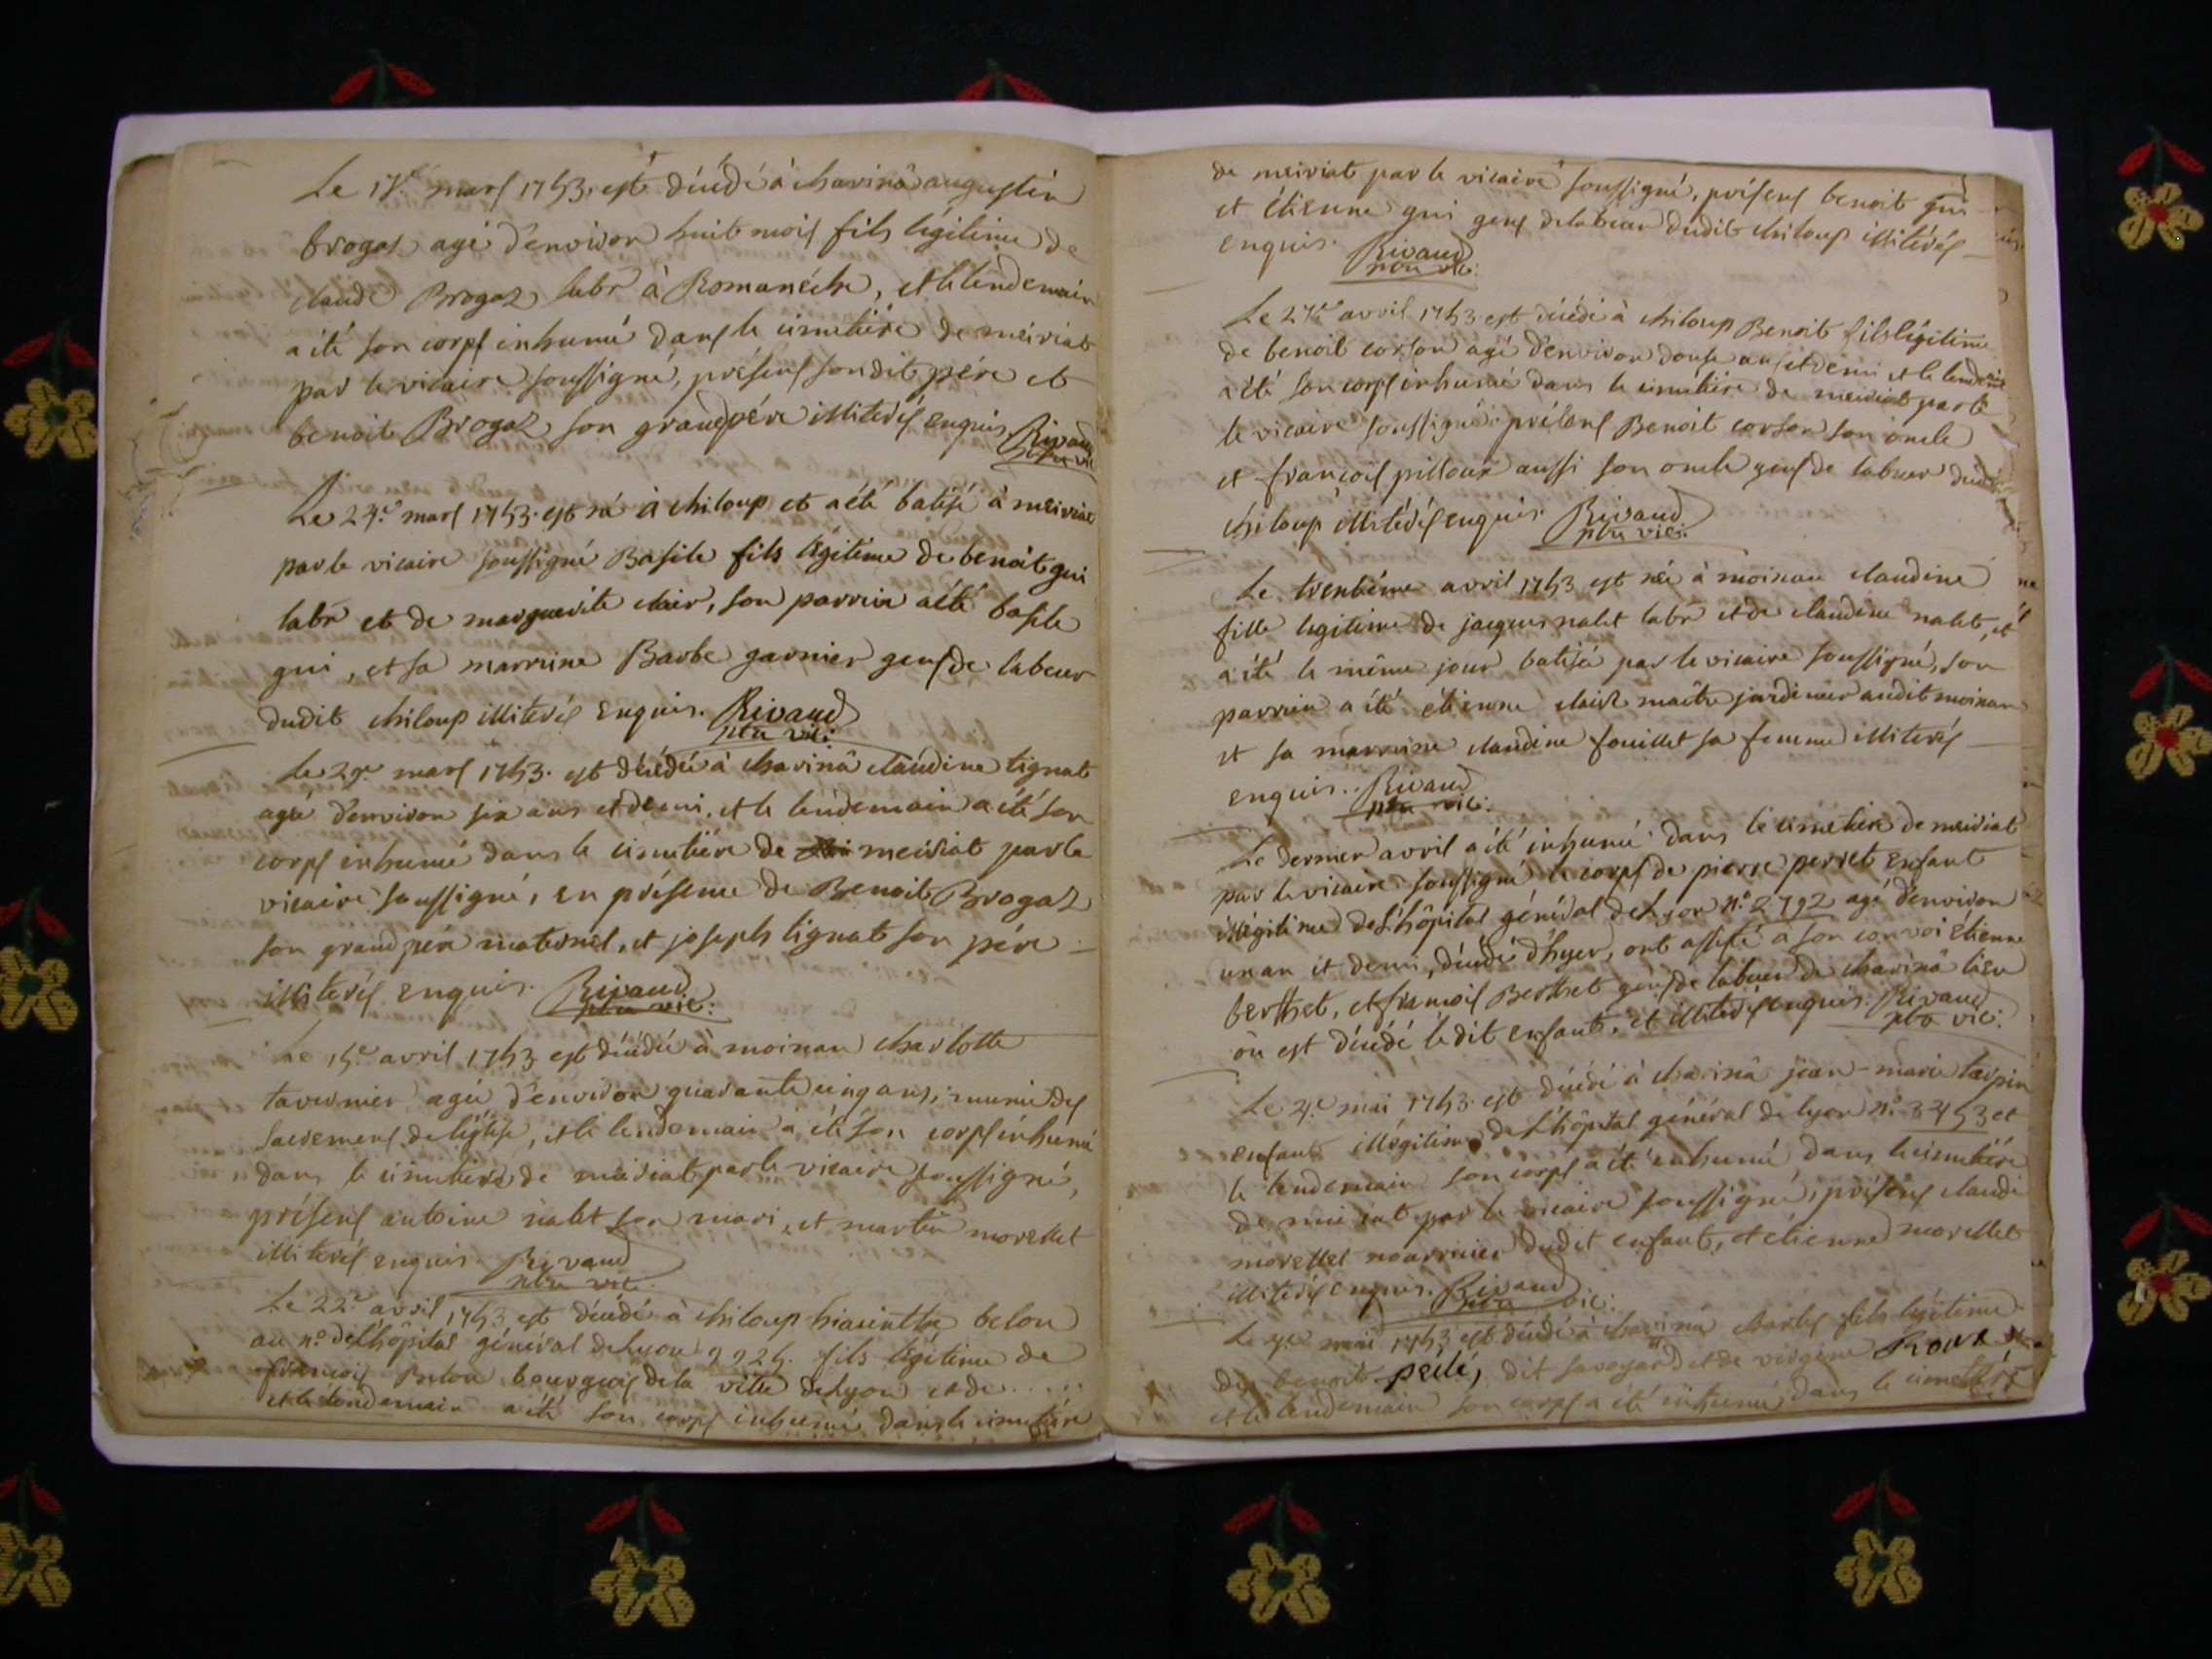 Le 17.e mars 1753. est décédé à chavinâ augustin
brogaz agé d'environ huit mois fils légitime de
claude Brogaz labr à Romanéche, et le lendemain
a été son corps inhumé dans le cimetiére de meiriat
par le vicaire soussigné, présens son dit pére et
benoit Brogaz son grandpére illiterés enquis Rivaud
ptre vic
Le 24.e mars 1753. est né à chiloup et a été batisé à meiriat
par le vicaire soussigné Basile fils légitime de benoit gui
labr et de marguerite clair, son parrin a été basile
gui, et sa marrine Barbe garnier gens de labeur
dudit chiloup illiterés enquis. Rivaud
ptre vic:
Le 29.e mars 1753. est décédée à chavinâ claudine tignat
agée d'environ six ans et demi, et le lendemain a été son
corps inhumé dans le cimetiére de meiriat par le
vicaire soussigné, en présence de Benoit Brogaz
son grand pére maternel, et joseph tignat son pére
illiterés enquis. Rivaud
ptre vic:
Le 15.e avril 1753 est décédée à moinan charlotte
tavernier agée d'environ quarante cinq ans, munie des
sacremens de l'église, et le lendemain a été son corps inhumé
dans le cimetiére de meiriat par le vicaire soussigné,
présens antoine nalet son mari, et martin morellet
illiterés enquis. Rivaud
ptre vic:
Le 22.e avril 1753 est décédé à chiloup hiacinthe belou
au n.o de l'hôpital général de Lyon 9925. fils légitime de
françois Belou bourgeois de la ville de Lyon et de .....
et le lendemain a été son corps inhumé dans le cimetiére
de meiriat par le vicaire soussigné, présens benoit gui
et étienne gui gens de labeur dudit chiloup illitérés
enquis. Rivaud
ptre vic:
Le 27.e avril 1753 est décédé à chiloup Benoit fils légitime
de benoit corson agé d'environ douse ans et demi et le lendemain
a été son corps inhumé dans le cimetiére de meiriat par le
le vicaire soussigné: présens Benoit corson son oncle
et françois pilloux aussi son oncle gens de labeur dudit
chiloup illitérés enquis. Rivaud
ptre vic:
Le trentiéme avril 1753 est née à moinan claudine
fille legitime de jacques nalet labr et de claudine nalet, et
a été le même jour batisée par le vicaire soussigné, son
parrin a été étienne clair maître jardinier audit moinan
et sa marrine claudine fouillet sa femme illiterés
enquis.. Rivaud
ptre vic:
Le dernier avril a été inhumé dans le cimetiére de meiriat
par le vicaire soussigné le corps de pierre perret enfant
illégitime de l'hôpital général de Lyon n.o 2792 agé d'environ
un an et demi, décédé d'hyer, ont assisté à son convoi étienne
berthet, et françois Berthet gens de labeur de chavinâ lieu
où est décédé le dit enfant, et illiterés enquis. Rivaud
ptre vic:
Le 4.e mai 1753. est décédé à chavinâ jean-marie
enfant illégitime de l'hôpital général de lyon n.o 3453 et
le lendemain son corps a été inhumé dans le cimetiére
de meiriat par le vicaire soussigné, présens claude
morellet nourricier dudit enfant, et étienne morellet
illiterés enquis. Rivaud
ptre vic:
Le mai 1753 est décédé à chavinâ charles fils légitime
de benoit péclé, dit savoyard et de virgine Roux
et le lendemain son corps a été inhumé dans le cimetiére